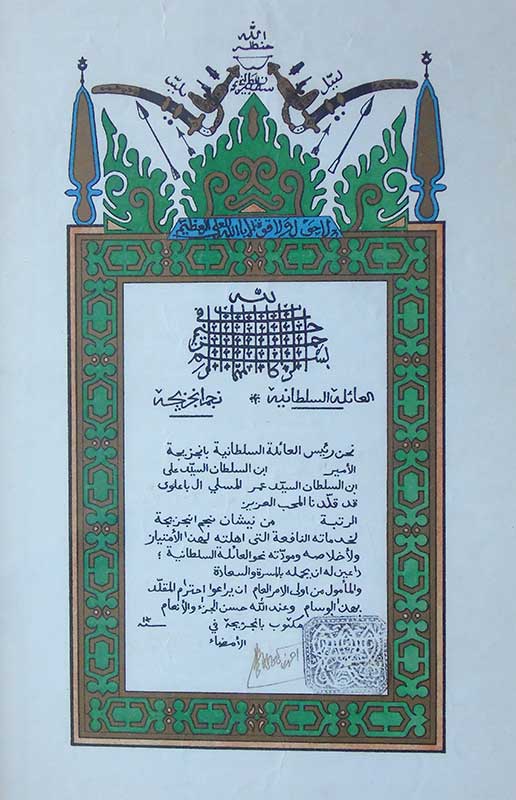 الله
حفظه
ولا حول ولا قوة إلا بالله العلي العظيم
العائلة السلطانية نجم انجزيجة
نحن رئيس العائلة السلطانية بانجزيجة
الأمير ابن السلطان السيّد علي
ابن السلطان السيّد عمر المسلي ال باعلوي
قد قلّدنا المحب العزيز
الرتبة من نيشان نجم انجزيجة
لخدماته النافعة التي اهلته لهذا الأمتياز
ولأخلاصه ومودّته نحو العائلة السلطانية ؛
داعين له ان يحمله بالمسرة والسعادة
والمأمول من اولى الامر العام ان يراعوا احترام المقلّد
بهذا الوسام وعند الله حسن الجزاء والأنعام
مكتوب بانجزيجة في سنة
الأمضاء